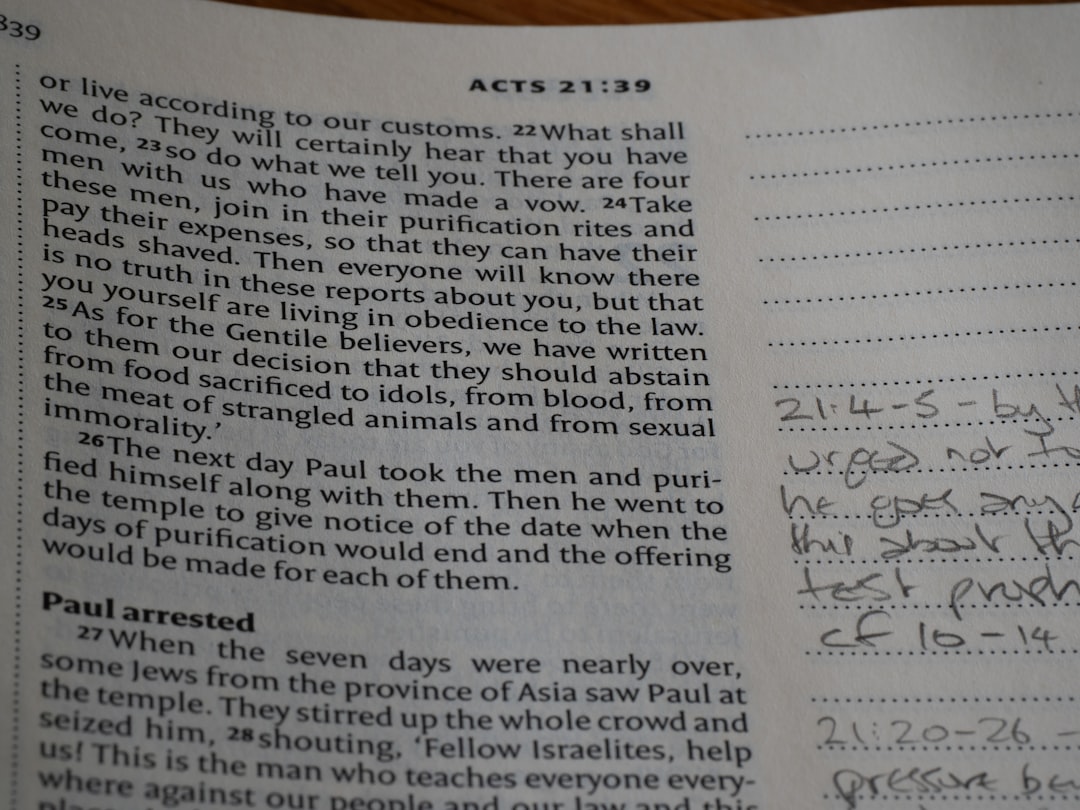 839
ACTS 21:39
or live according to our customs. 22 What shall
we do? They will certainly hear that you have
come, 23 so do what we tell you. There are four
men with us who have made a vow. 24 Take
these men, join in their purification rites and
pay their expenses, so that they can have their
heads shaved. Then everyone will know there
is no truth in these reports about you, but that
you yourself are living in obedience to the law.
25 As for the Gentile believers, we have written
to them our decision that they should abstain
from food sacrificed to idols, from blood, from
the meat of strangled animals and from sexual
immorality.’
26 The next day Paul took the men and puri-
fied himself along with them. Then he went to
the temple to give notice of the date when the
days of purification would end and the offering
would be made for each of them.
Paul arrested
27 When the seven days were nearly over,
some Jews from the province of Asia saw Paul at
the temple. They stirred up the whole crowd and
seized him, 28 shouting, ‘Fellow Israelites, help
us! This is the man who teaches everyone every-
where against our people and our law and this
21:4-5 - by
urged not
he goes
this about
test
cf 10-14
21:20-26 -
pressure